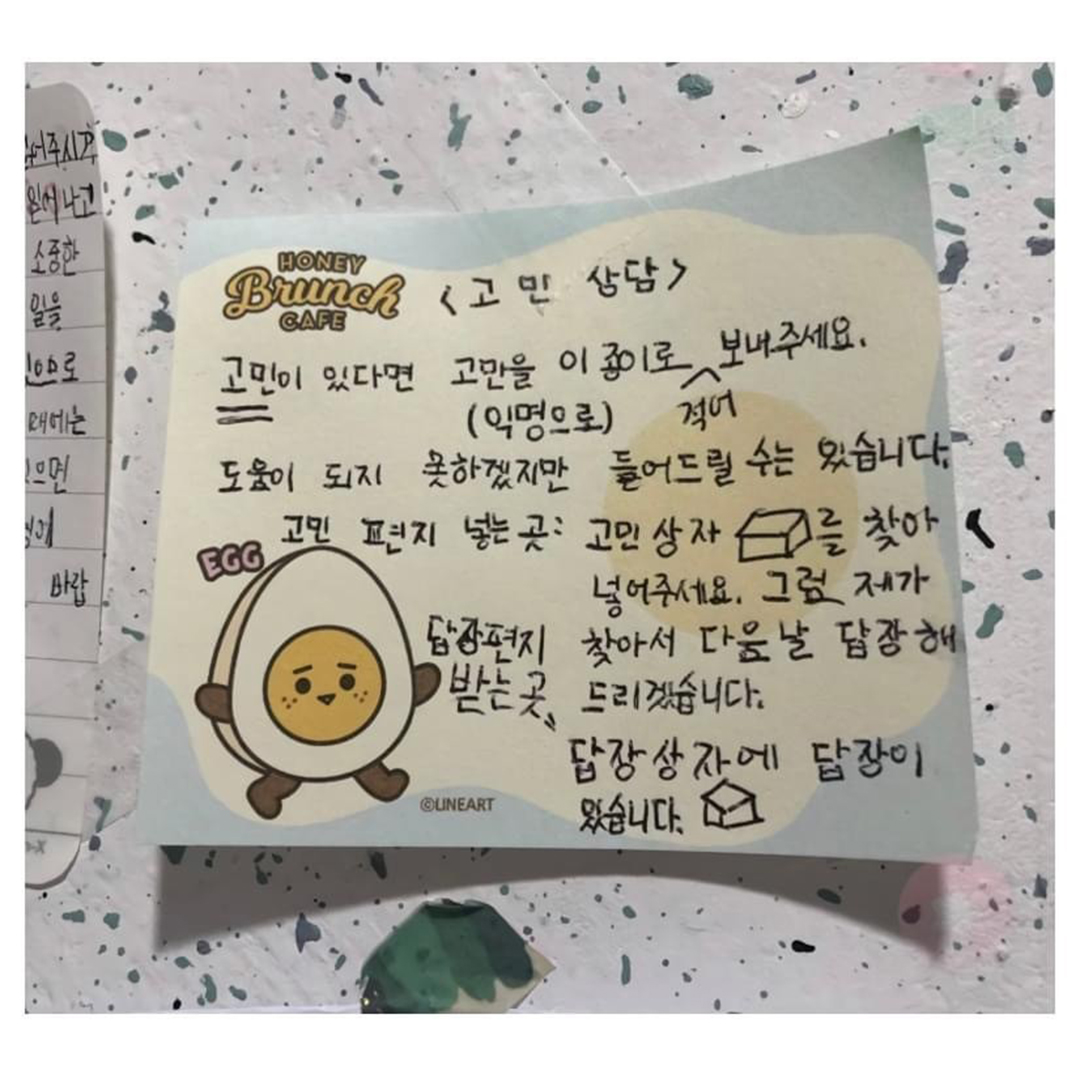 어주시고
일어나고
소중한
일을
으로
때에는
으면
바랍
HONEY
Brunch
CAFE
<고민 상담>
고민이 있다면 고만을 이 종이로 적어 보내주세요.
(익명으로)
도움이 되지 못하겠지만 들어드릴 수는 있습니다.
고민 편지 넣는 곳: 고민상자 를 찾아
넣어주세요. 그럼 제가
EGG
답장편지 찾아서 다음날 답장해
받는 곳 드리겠습니다.
답장상자에 답장이
있습니다.
©LINEART